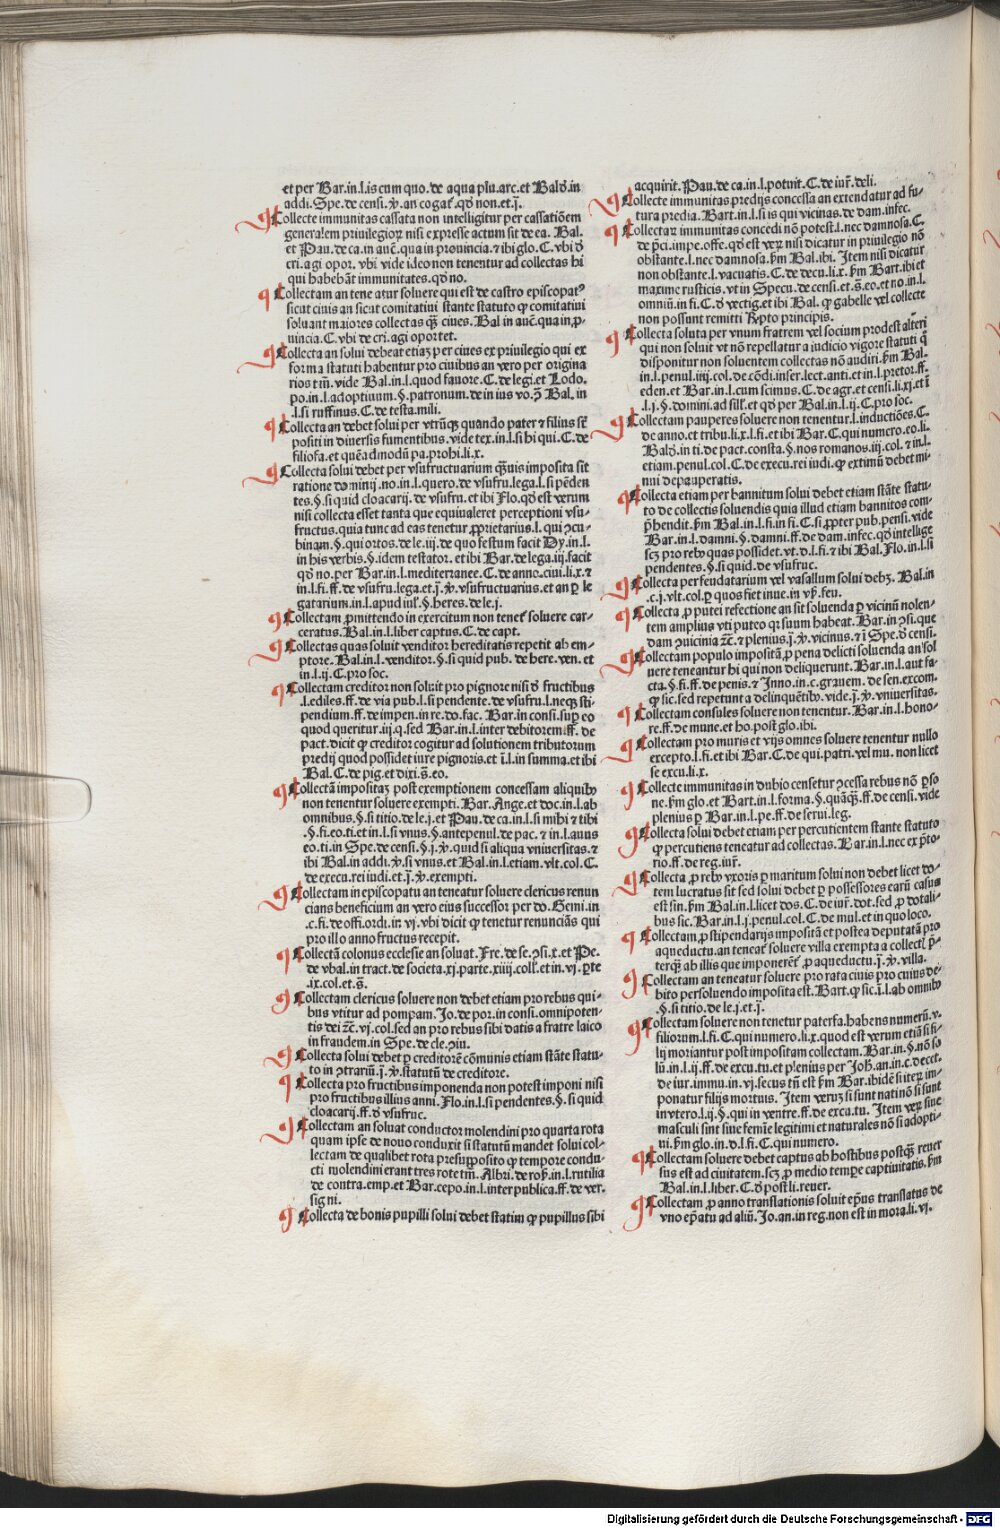 et per Bar.in.l.is cum quo.de aqua plu.arc.et Bald̄.in
addi.Spe.de censi.ꝟ.an cogat᷑.qd̄ non.et.ī.
Collecte immunitas cassata non intelligitur per cassatiōem
generalem priuilegioꝝ nisi expresse actum sit de ea. Bal.
et Pau.de ca.in auc̄.qua in prouincia.⁊ ibi glo.C.vbi d̄
cri.agi opor.vbi vide ideo non tenentur ad collectas hi
qui habebāt immunitates.qd̄ no.
Collectam an tene atur soluere qui est de castro episcopatꝰ
sicut ciuis an sicut comitatini stante statuto ꝙ comitatini
soluant maiores collectas q̄ȝ ciues. Bal in auc̄.qua in ꝓ-
uincia.C.vbi de cri.agi oportet.
Collecta an solui debeat etiaȝ per ciues ex priuilegio qui ex
forma statuti habentur pro ciuibus an vero per origina
rios tm̄.vide Bal.in.l.quod fauore.C.de legi.et Lodo.
po.in.l.adoptiuum.§.patronum.de in ius vo.ꝫ Bal.in
.l.si ruffinus.C.de testa.mili.
Collecta an debet solui per vtrūqȝ quando pater ⁊ filius sūt
positi in diuersis fumentibus.vide tex.in.l.si hi qui.C.de
filiofa.et quēadmodū pa.prohi.li.x.
Collecta solui debet per vsufructuarium q̄uis imposita sit
ratione dominij.no.in.l.quero.de vsufru.lega.l.si pēden
tes.§.si quid cloacarij.de vsufru.et ibi Flo.qd̄ est verum
nisi collecta esset tanta que equiualeret perceptioni vsu-
fructus.quia tunc ad eas tenetur ꝓprietarius.l.qui ꝯcu-
binam.§.qui ortos.de le.iij.de quo festum facit Dy.in.l.
in his verbis.§.idem testator.et ibi Bar.de lega.iij.facit
qd̄ no.per Bar.in.l.mediterranee.C.de anno.ciui.li.x.⁊
in.l.fi.ff.de vsufru.lega.et.ī.ꝟ.vsufructuarius.et an ꝑ le
gatarium.in.l.apud iul᷑.§.heres.de le.j.
Collectam ꝓmittendo in exercitum non tenet᷑ soluere car-
ceratus.Bal.in.l.liber captus.C.de capt.
Collectas quas soluit venditor hereditatis repetit ab em-
ptore.Bal.in.l.venditor.§.si quid pub.de here.ven.et
in.l.ij.C.pro soc.
Collectam creditor non soluit pro pignore nisi d̄ fructibus
.l.ediles.ff.de via pub.l.si pendente.de vsufru.l.neqȝ sti-
pendium.ff.de impen.in re.do.fac. Bar.in consi.suꝑ eo
quod queritur.iij.q.sed Bar.in.l.inter debitorem.ff.de
pact.dicit ꝙ creditor cogitur ad solutionem tributorum
predij quod possidet iure pignoris.et ī.l.in summa.et ibi
Bal.C.de pig.et dixi.s̄.eo.
Collectā impositaȝ post exemptionem concessam aliquibꝰ
non tenentur soluere exempti. Bar.Ange.et doc.in.l.ab
omnibus.§.si titio.de le.j.et Pau.de ca.in.l.si mihi ⁊ tibi
.§.fi.eo.ti.et in.l.si vnus.§.antepenul.de pac.⁊ in.l.auus
eo.ti.in Spe.de censi.§.j.ꝟ.quid si aliqua vniuersitas.⁊
ibi Bal.in addi.ꝟ.si vnus.et Bal.in.l.etiam.vlt.col.C.
de execu.rei iudi.et.ī.ꝟ.exempti.
Collectam in episcopatu an teneatur soluere clericus renun
cians beneficium an vero eius successor per do.Gemi.in
.c.fi.de offi.ordi.in.vj.vbi dicit ꝙ tenetur renunciās qui
pro illo anno fructus recepit.
Collectā colonus ecclesie an soluat.Fre.de se.ꝯsi.x.et Pe.
de vbal.in tract.de societa.xj.parte.xiiij.coll᷑.et in.vj.ꝑte
.ix.col.et.s̄.
Collectam clericus soluere non debet etiam pro rebus qui-
bus vtitur ad pompam.Jo.de poz.in consi.omnipoten-
tis dei ⁊c̄.vj.col.sed an pro rebus sibi datis a fratre laico
in fraudem.in Spe.de cle.ꝯiu.
Collecta solui debet ꝑ creditorē cōmunis etiam stāte statu-
to in ꝯtrariū.ī.ꝟ.statutū de creditore.
Collecta pro fructibus imponenda non potest imponi nisi
pro fructibus illius anni.Flo.in.l.si pendentes.§.si quid
cloacarij.ff.d̄ vsufruc.
Collectam an soluat conductor molendini pro quarta rota
quam ipse de nouo conduxit si statutū mandet solui col-
lectam de qualibet rota presupposito ꝙ tempore condu-
cti molendini erant tres rote tm̄. Albri.de ros᷑.in.l.rutilia
de contra.emp.et Bar.cepo.in.l.inter publica.ff.de ver.
signi.
Collecta de bonis pupilli solui debet statim ꝙ pupillus sibi
acquirit.Pau.de ca.in.l.potuit.C.de iur̄.deli.
Collecte immunitas predijs concessa an extendatur ad fu-
tura predia. Bart.in.l.si is qui vicinas.de dam.infec.
Collectaꝝ immunitas concedi nō potest.l.nec damnosa.C.
de p̄ci.impe.offe.qd̄ est veꝝ nisi dicatur in priuilegio nō
obstante.l.nec damnosa.ẜm Bal.ibi. Item nisi dicatur
non obstante.l.vacuatis.C.de decu.li.x.ẜm Bart.ibi et
maxime rusticis.vt in Specu.de censi.et.s̄.eo.et no.in.l.
omniū.in fi.C.d̄ vectig.et ibi Bal.ꝙ gabelle vel collecte
non possunt remitti excepto principis.
Collecta soluta per vnum fratrem vel socium prodest alteri
qui non soluit vt nō repellatur a iudicio vigore statuti q̄
disponitur non soluentem collectas nō audiri.ẜm Bal.
in.l.penul.iiij.col.de cōdi.inser.lect.anti.et in.l.pretor.ff.
eden.et Bar.in.l.cum scimus.C.de agr.et censi.li.xj.et ī
.l.j.§.domini.ad sill᷑.et qd̄ per Bal.in.l.ij.C.pro soc.
Collectam pauperes soluere non tenentur.l.inductiōes.C.
de anno.et tribu.li.x.l.fi.et ibi Bar.C.qui numero.eo.li.
Bald̄.in ti.de pact.consta.§.nos romanos.iij.col.⁊ in.l.
etiam.penul.col.C.de execu.rei iudi.ꝙ extimū debet mi-
nui depauperatis.
Collecta etiam per bannitum solui debet etiam stāte statu-
to de collectis soluendis quia illud etiam bannitos com-
p̄hendit.ẜm Bal.in.l.fi.in fi.C.si ꝓpter pub.pensi.vide
Bar.in.l.damni.§.damni.ff.de dam.infec.qd̄ intellige
scȝ pro rebꝰ quas possidet.vt.d.l.fi.⁊ ibi Bal.Flo.in.l.si
pendentes.§.si quid.de vsufruc.
Collecta per feudatarium vel vasallum solui debȝ. Bal.in
.c.j.vlt.col.ꝑ quos fiet inue.in vsib᷑.feu.
Collecta ꝓ putei refectione an sit soluenda ꝑ vicinū nolen-
tem amplius vti puteo qꝛ suum habeat. Bar.in ꝯsi.que
dam ꝯuicinia ⁊c̄.⁊ plenius.ī.ꝟ.vicinus.⁊ ī Spe.d̄ censi.
Collectam populo impositā ꝓ pena delicti soluenda an sol
uere teneantur hi qui non deliquerunt. Bar.in.l.aut fa-
cta.§.fi.ff.de penis.⁊ Inno.in.c.grauem.de sen.excom.
ꝙ sic.sed repetunt a delinquētibꝰ.vide.ī.ꝟ.vniuersitas.
Collectam consules soluere non tenentur. Bar.in.l.hono-
re.ff.de mune.et ho.post glo.ibi.
Collectam pro muris et vijs omnes soluere tenentur nullo
excepto.l.fi.et ibi Bar.C.de qui.patri.vel mu.non licet
se excu.li.x.
Collecte immunitas in dubio censetur ꝯcessa rebus nō ꝑso
ne.ẜm glo.et Bart.in.l.forma.§.quāqȝ.ff.de censi.vide
plenius ꝑ Bar.in.l.pe.ff.de serui.leg.
Collecta solui debet etiam per percutientem stante statuto
ꝙ percutiens teneatur ad collectas. Bar.in.l.nec ex p̄to-
rio.ff.de reg.iur̄.
Collecta ꝓ rebꝰ vxoris ꝑ maritum solui non debet licet do-
tem lucratus sit sed solui debet ꝑ possessores earū casus
est sin.ẜm Bal.in.l.licet dos.C.de iur̄.dot.sed ꝓ dotali-
bus sic.Bar.in.l.j.penul.col.C.de mul.et in quo loco.
Collectam ꝓ stipendarijs impositā et postea deputatā pro
aqueductu.an teneat᷑ soluere villa exempta a collect᷑ p̄-
terq̄ȝ ab illis que imponerēt᷑ ꝓ aqueductu.ī.ꝟ.villa.
Collectam an teneatur soluere pro rata ciuis pro cuius de-
bito persoluendo imposita est. Bart.ꝙ sic.ī.l.ab omnibꝰ
.§.si titio.de le.j.et.ī.
Collectam soluere non tenetur paterfa.habens numerū.v.
filiorum.l.fi.C.qui numero.li.x.quod est verum etiā si fi-
lij moriantur post impositam collectam. Bar.in.§.nō so
lū.in.l.ij.ff.de excu.tu.et plenius per Joh̄.an.in.c.decet.
de iur.immu.in.vj.secus tn̄ est ẜm Bar.ibidē si iteꝝ im-
ponatur filijs mortuis. Item veruȝ si sunt nati nō si sunt
in vtero.l.ij.§.qui in ventre.ff.de excu.tu. Item veꝝ siue
masculi sint siue femīe legitimi et naturales nō si adopti-
ui.ẜm glo.in.d.l.fi.C.qui numero.
Collectam soluere debet captus ab hostibus postq̄ȝ reuer
sus est ad ciuitatem.scȝ ꝓ medio tempe captiuitatis.ẜm
Bal.in.l.liber.C.d̄ post li.reuer.
Collectam ꝓ anno translationis soluit ep̄us translatus de
vno ep̄atu ad aliū.Jo.an.in reg.non est in mora.li.vj.
Digitalisierung gefördert durch die Deutsche Forschungsgemeinschaft - DFG